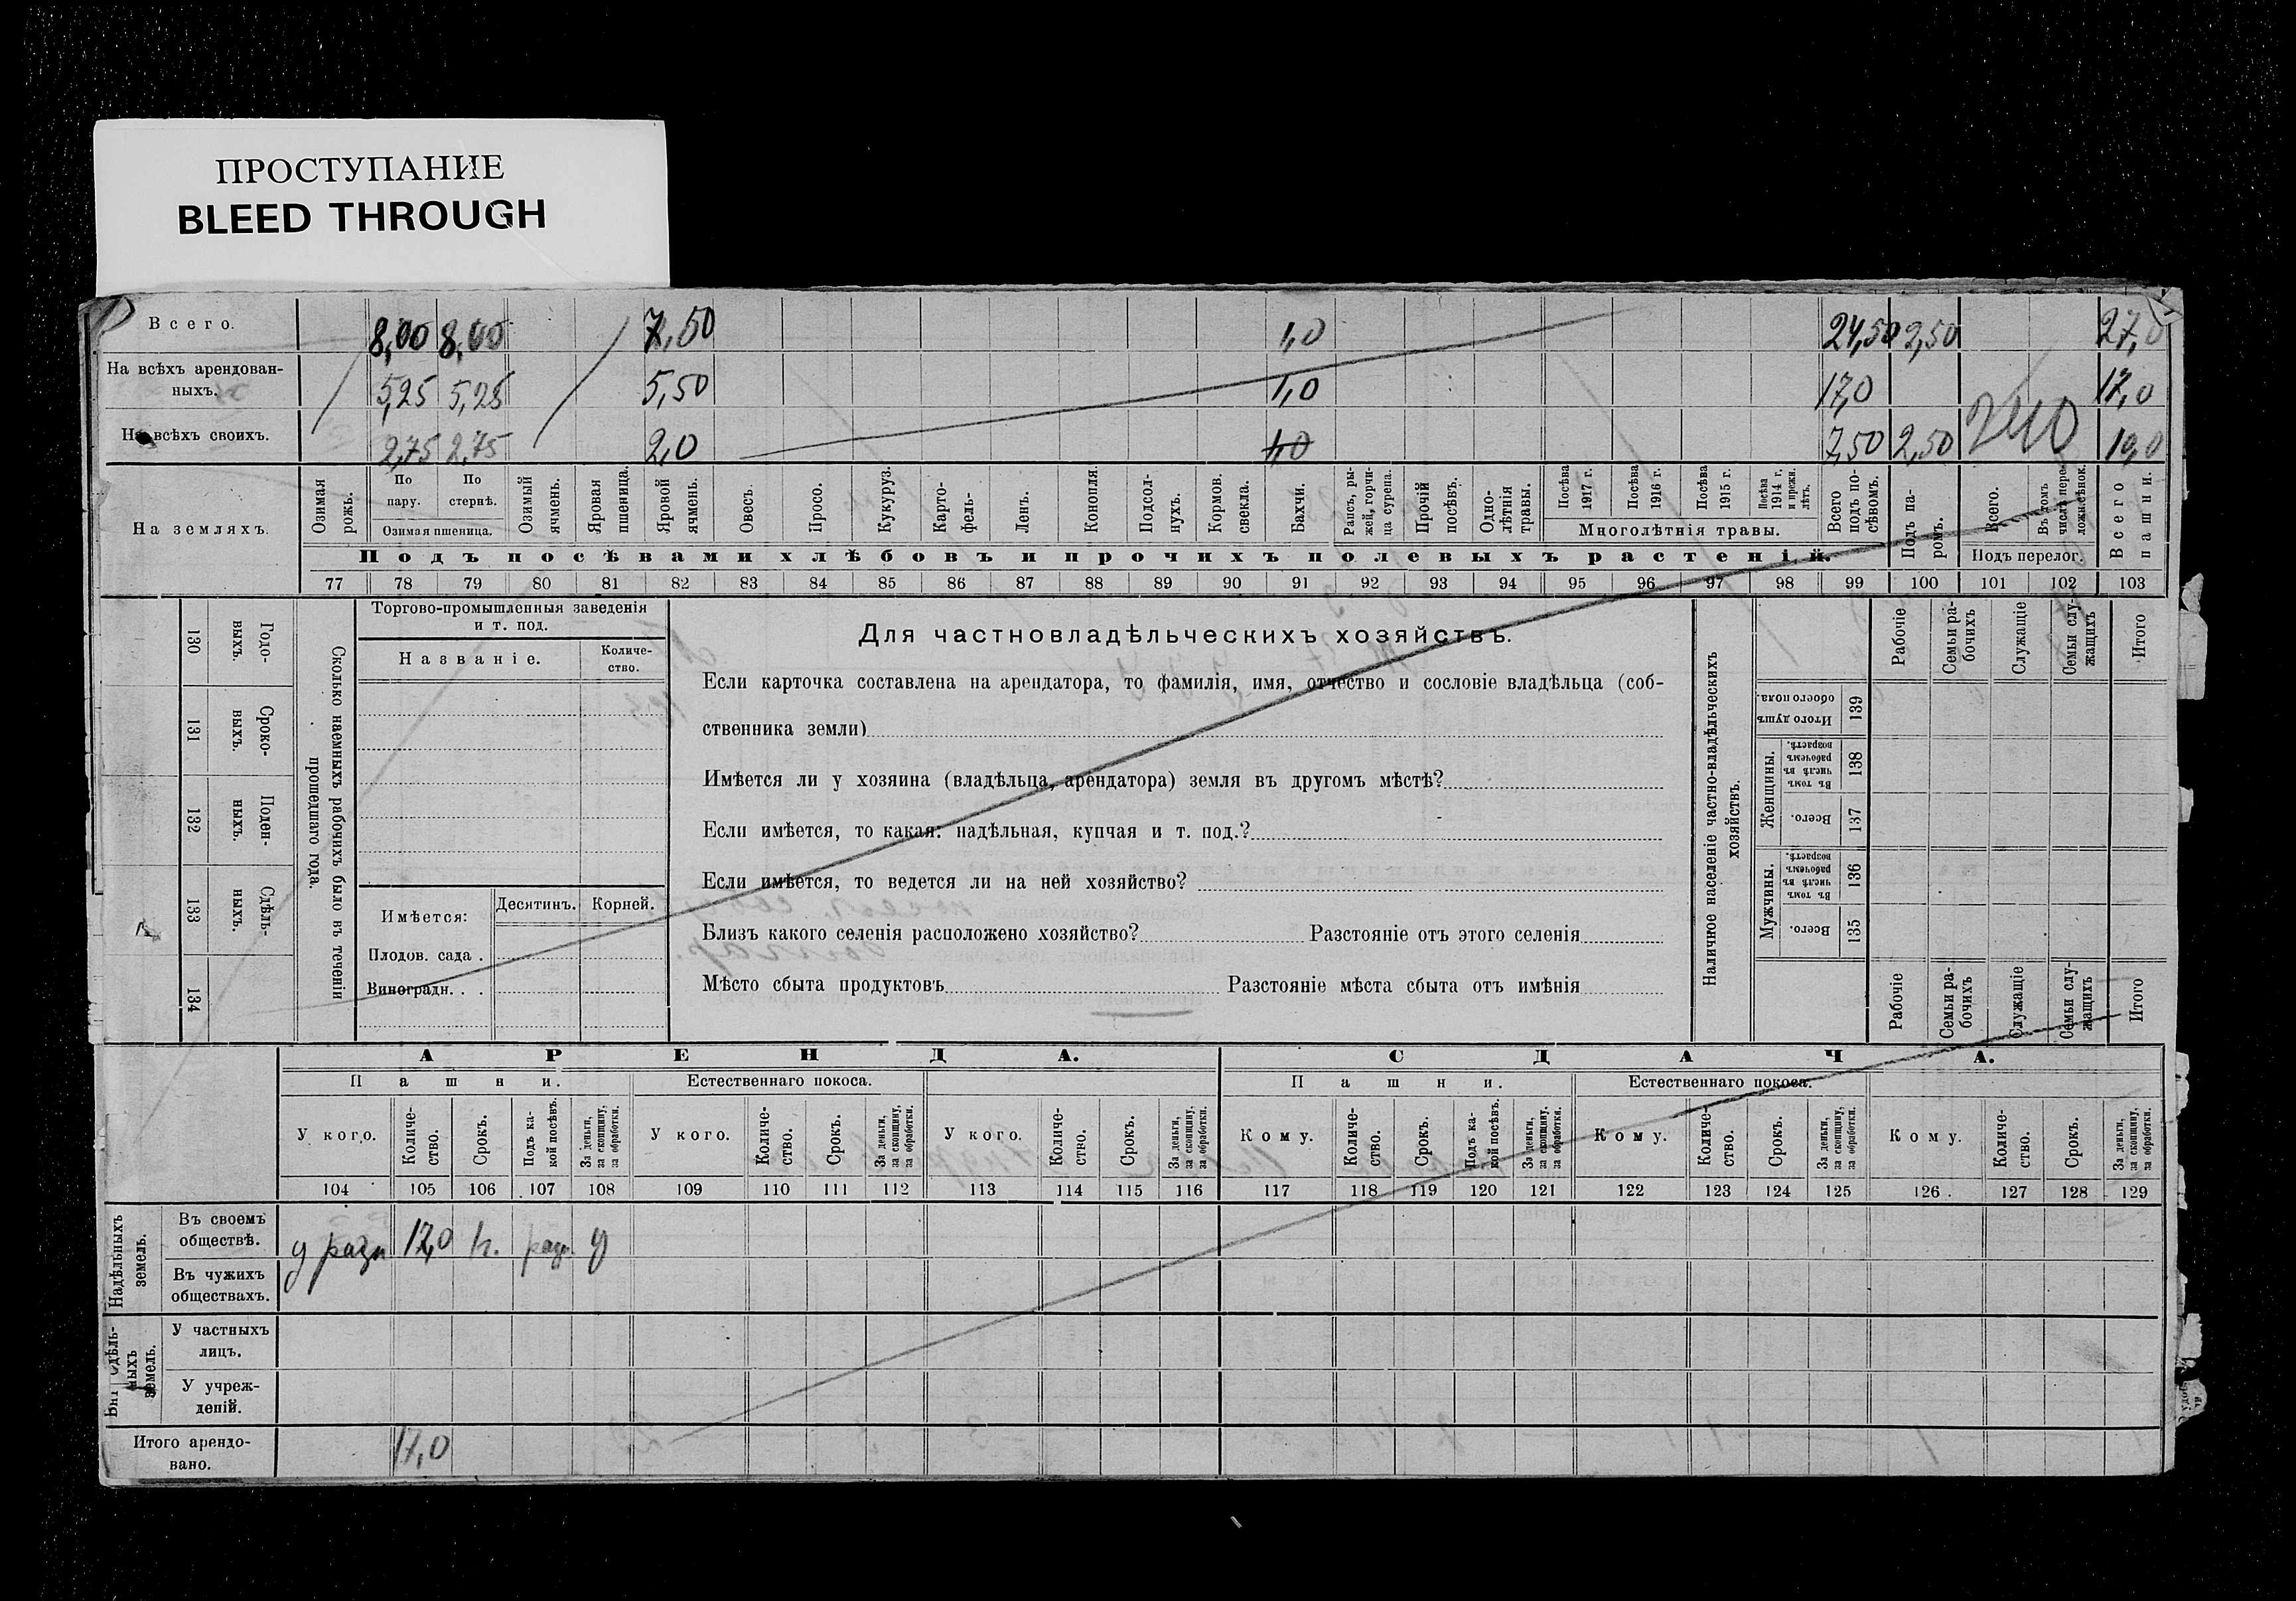 ПРОСТУПАНИЕ
BLEED THROUGH
Всего. 8,00 8,00 7,50 1,0 24,50 2,50 27,0
На всѣхъ арендован-
ныхъ. 5,25 5,25 5,50 1,0 17,0 17,0
На всѣхъ своихъ. 2,75 2,75 2,0 1,0 7,50 2,50 10,0
На земляхъ.
Озимая рожь.
По пару.
По стернѣ.
Озимая пшеница.
Озимый ячмень.
Яровая пшеница.
Яровой ячмень.
Овесъ.
Просо.
Кукуруз.
Карто-
фель-
Ленъ.
Конопля
Подсол-
нухъ.
Кормов. свекла.
Бахчи.
Рапсъ, ры-
жей, горчи-
ца сурепа.
Прочій посѣвъ.
Одно-
лѣтнія травы.
Посѣва 1917 г.
Посѣва 1916 г.
Посѣва 1915 г.
Посѣва 1914 г. и прежн. лѣтъ.
Многолѣтнія травы.
Всего подъ по-
сѣвомъ.
Подъ па-
ромъ.
Всего.
Въ томъ числѣ пере-
ложн. сѣнокос.
Подъ перелог.
Всего пашни.
Подъ посѣвами хлѣбовъ и прочихъ полевыхъ растеній.
77 78 79 80 81 82 83 84 85 86 87 88 89 90 91 92 93 94 95 96 97 98 99 100 101 102 103
130 Годо-
выхъ.
131 Сроко-
выхъ.
132 Поден-
ныхъ.
133 Сдѣль-
ныхъ.
134
Сколько наемныхъ рабочихъ было въ теченіи
прошедшаго года.
Торгово-промышленныя заведенія
и т. под.
Названіе.
Количе-
ство.
Имѣется:
Десятинъ. Корней.
Плодов. сада .
Виноградн. . .
Для частновладѣльческихъ хозяйствъ.
Если карточка составлена на арендатора, то фамилія, имя, отчество и сословіе владѣльца (соб-
ственника земли)
Имѣется ли у хозяина (владѣльца, арендатора) земля въ другомъ мѣстѣ?
Если имѣется, то какая: надѣльная, купчая и т. под.?
Если имѣется, то ведется ли на ней хозяйство?
Близъ какого селенія расположено хозяйство? Разстояніе отъ этого селенія
Мѣсто сбыта продуктовъ Разстояніе мѣста сбыта отъ имѣнія
Наличное населеніе частно-владѣльческихъ
хозяйствъ.
Рабочіе
Семьи ра-
бочихъ
Служащіе
Семьи слу-
жащихъ
Итого
Итого душъ обоего пола. 139
Женщины.
Въ томъ числѣ въ рабочемъ возрастѣ. 138
Всего. 137
Мужчины.
Въ томъ числѣ въ рабочемъ возрастѣ. 136
Всего. 135
Рабочіе
Семьи ра-
бочихъ
Служащіе
Семьи слу-
жащихъ
Итого
АРЕНДА. СДАЧА.
Пашни. Естественнаго покоса. Пашни. Естественнаго покоса.
У кого. Количе-
ство. Срокъ. Подъ ка-
кой посѣвъ. За деньги, за скопщину, за обработки.
У кого. Количе-
ство. Срокъ. За деньги, за скопщину, за обработки.
У кого. Количе-
ство. Срокъ. За деньги, за скопщину, за обработки.
Кому. Количе-
ство. Срокъ. Подъ ка-
кой посѣвъ. За деньги, за скопщину, за обработки.
Кому. Количе-
ство. Срокъ. За деньги, за скопщину, за обработки.
Кому. Количе-
ство. Срокъ. За деньги, за скопщину, за обработки.
104 105 106 107 108 109 110 111 112 113 114 115 116 117 118 119 120 121 122 123 124 125 126 . 127 128 129
Надѣльныхъ
земель.
Въ своемъ
обществѣ. у разн 17,0
Въ чужихъ
обществахъ.
земель.
У частныхъ
лицъ.
У учреж-
деній.
Итого арендо-
вано. 17,0